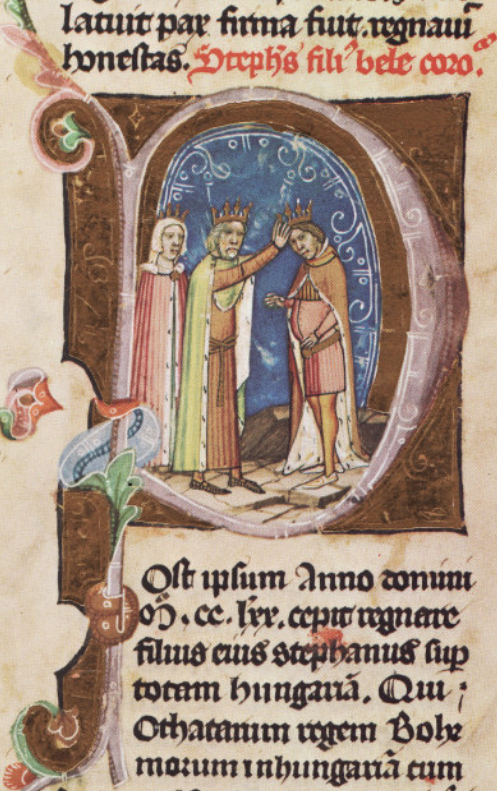 latuit pax firma fuit. regnaui
honestas. Stephs fili' bele coro.
Ost ipsum Anno domini
oɔ̄. cc. lxx. cepit regnare
filius eius stephanus sup
totam hungariā. Qui
Othacarum regem Bohe
morum in hungariā cum